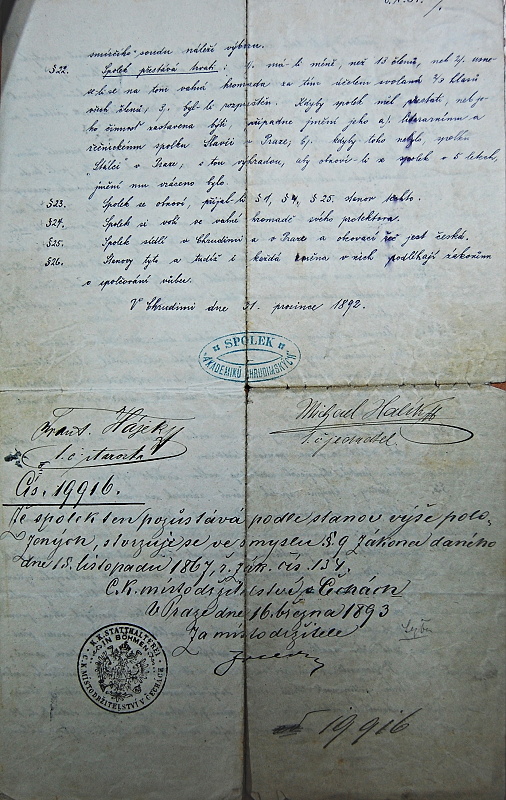 smírčího soudu náleží výboru.
§22. Spolek přestává trvati: 1. má-li méně, než 15 členů, neb 2. usne-
se-li se na tom valná hromada za tím účelem svolaná 2/3 hlasů
všech členů; 3. byl-li rozpuštěn. Kdyby spolek měl přestati, neb je-
ho činnost zastavena býti, připadne jmění jeho a) literárnímu a
řečnickému spolku Slavii v Praze; b) kdyby toho nebylo spolku
„Štítný“ v Praze, s tou výhradou, aby obnoví-li se spolek v 5 letech,
jmění mu vráceno bylo.
§23. Spolek se obnoví, přijal-li §1, §4, § 25. stanov těchto.
§24. Spolek si volí ve valné hromadě svého protektora.
§25. Spolek sídlí v Chrudimi a v Praze a obcovací řeč jest česká.
§26. Stanovy tyto a tudíž i každá změna v nich podléhají zákonům
o spolčování vůbec.
V Chrudimi dne 31. prosince 1892.
SPOLEK
AKADEMIKŮ CHRUDIMSKÝCH
Frant. Hájek
Michael Halík
t. č. starosta
t. č. jednatel
Čís. 19916.
Že spolek ten pozůstává podle stanov výše polo-
žených, stvrzuje se ve smyslu § 9 zákona daného
dne 15. listopadu 1867, ř. zák. čís. 134.
C. k. místodržitelství v Čechách
V Praze dne 16. března 1893
Za místodržitele
K. K. STATTHALTEREI IN BÖHMEN
C. K. MÍSTODRŽITELSTVÍ V ČECHÁCH
19916